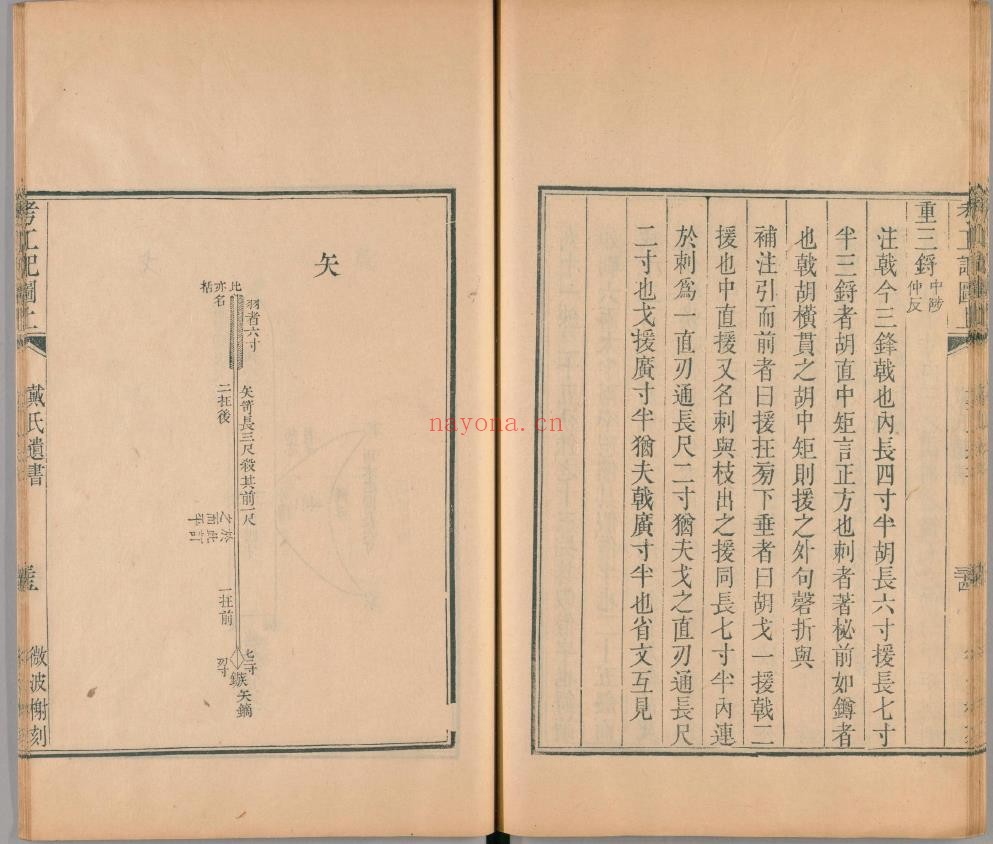 重三鋝中陟仲反
注戟今三鋒戟也內長四寸半胡長六寸援長七寸
半三鋝者胡直中矩言正方也刺者著柲前如鐏者
也戟胡橫貫之胡中矩則援之外句磬折與
補注引而前者曰援在旁下垂者曰胡戈一援戟二
援也中直援又名刺與枝出之援同長七寸半內連
於刺爲一直刃通長尺二寸猶夫戈之直刃通長尺
二寸也戈援廣寸半猶夫戟廣寸半也省文互見
矢
羽者六寸
比
亦名
栝
矢笴長三尺殺其前一尺
二在後
於此
之而
平訂
一在前
七寸
刃寸
鏃
矢鏑
考工記圖上
戴氏遺書
微波榭刻
nayona.cn